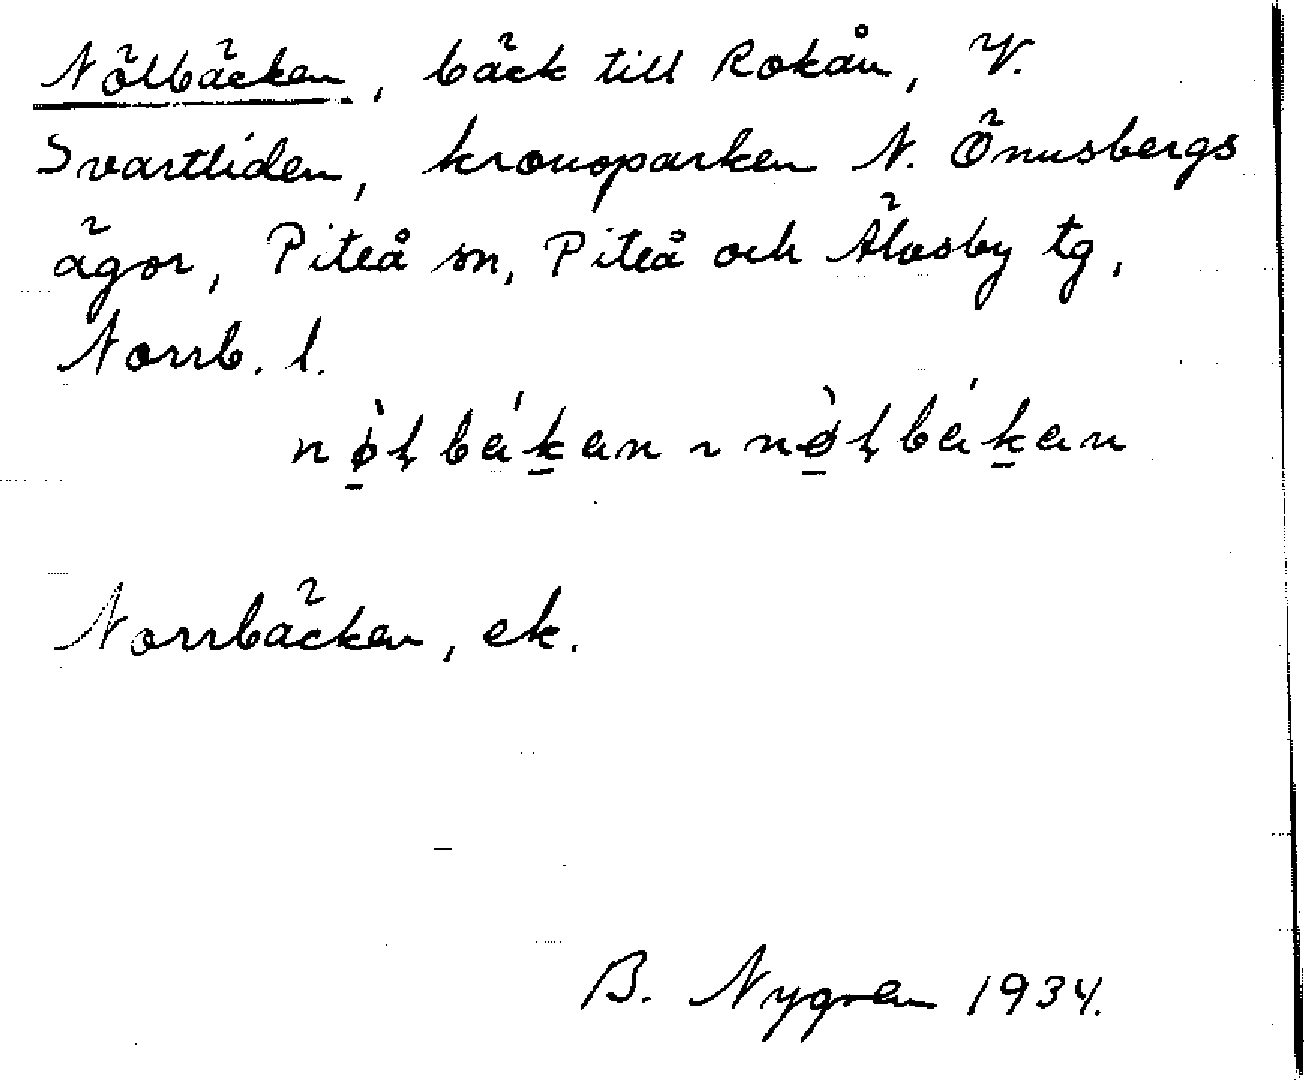 Nölbäcken, bäck till Rokån, V.
Svartliden, kronoparken N. Önusbergs
ägor, Piteå sn, Piteå och Älvsby tg,
Norrb. l.
nø̀ḷbákan ~ nø̀ḷbákan
Norrbäcken, ek.
B. Nygren 1934.